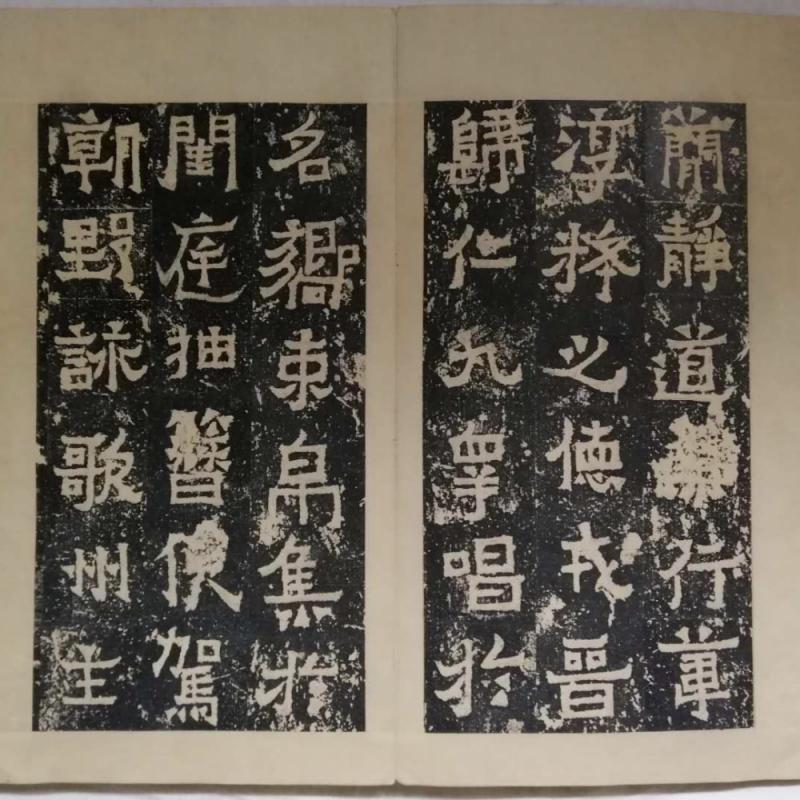 簡靜道兼行葦
淳粹之德戎晉
歸仁九皋唱於
名嚮束帛集於
閨庭抽簪俟駕
朝野詠歌州主